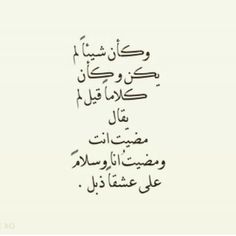 وكأن شيئاً لم
يكن وكأن
كلاماً قيل لم
يقال
مضيت انت
ومضيتُ انا وسلامً
على عشقاً ذبل .